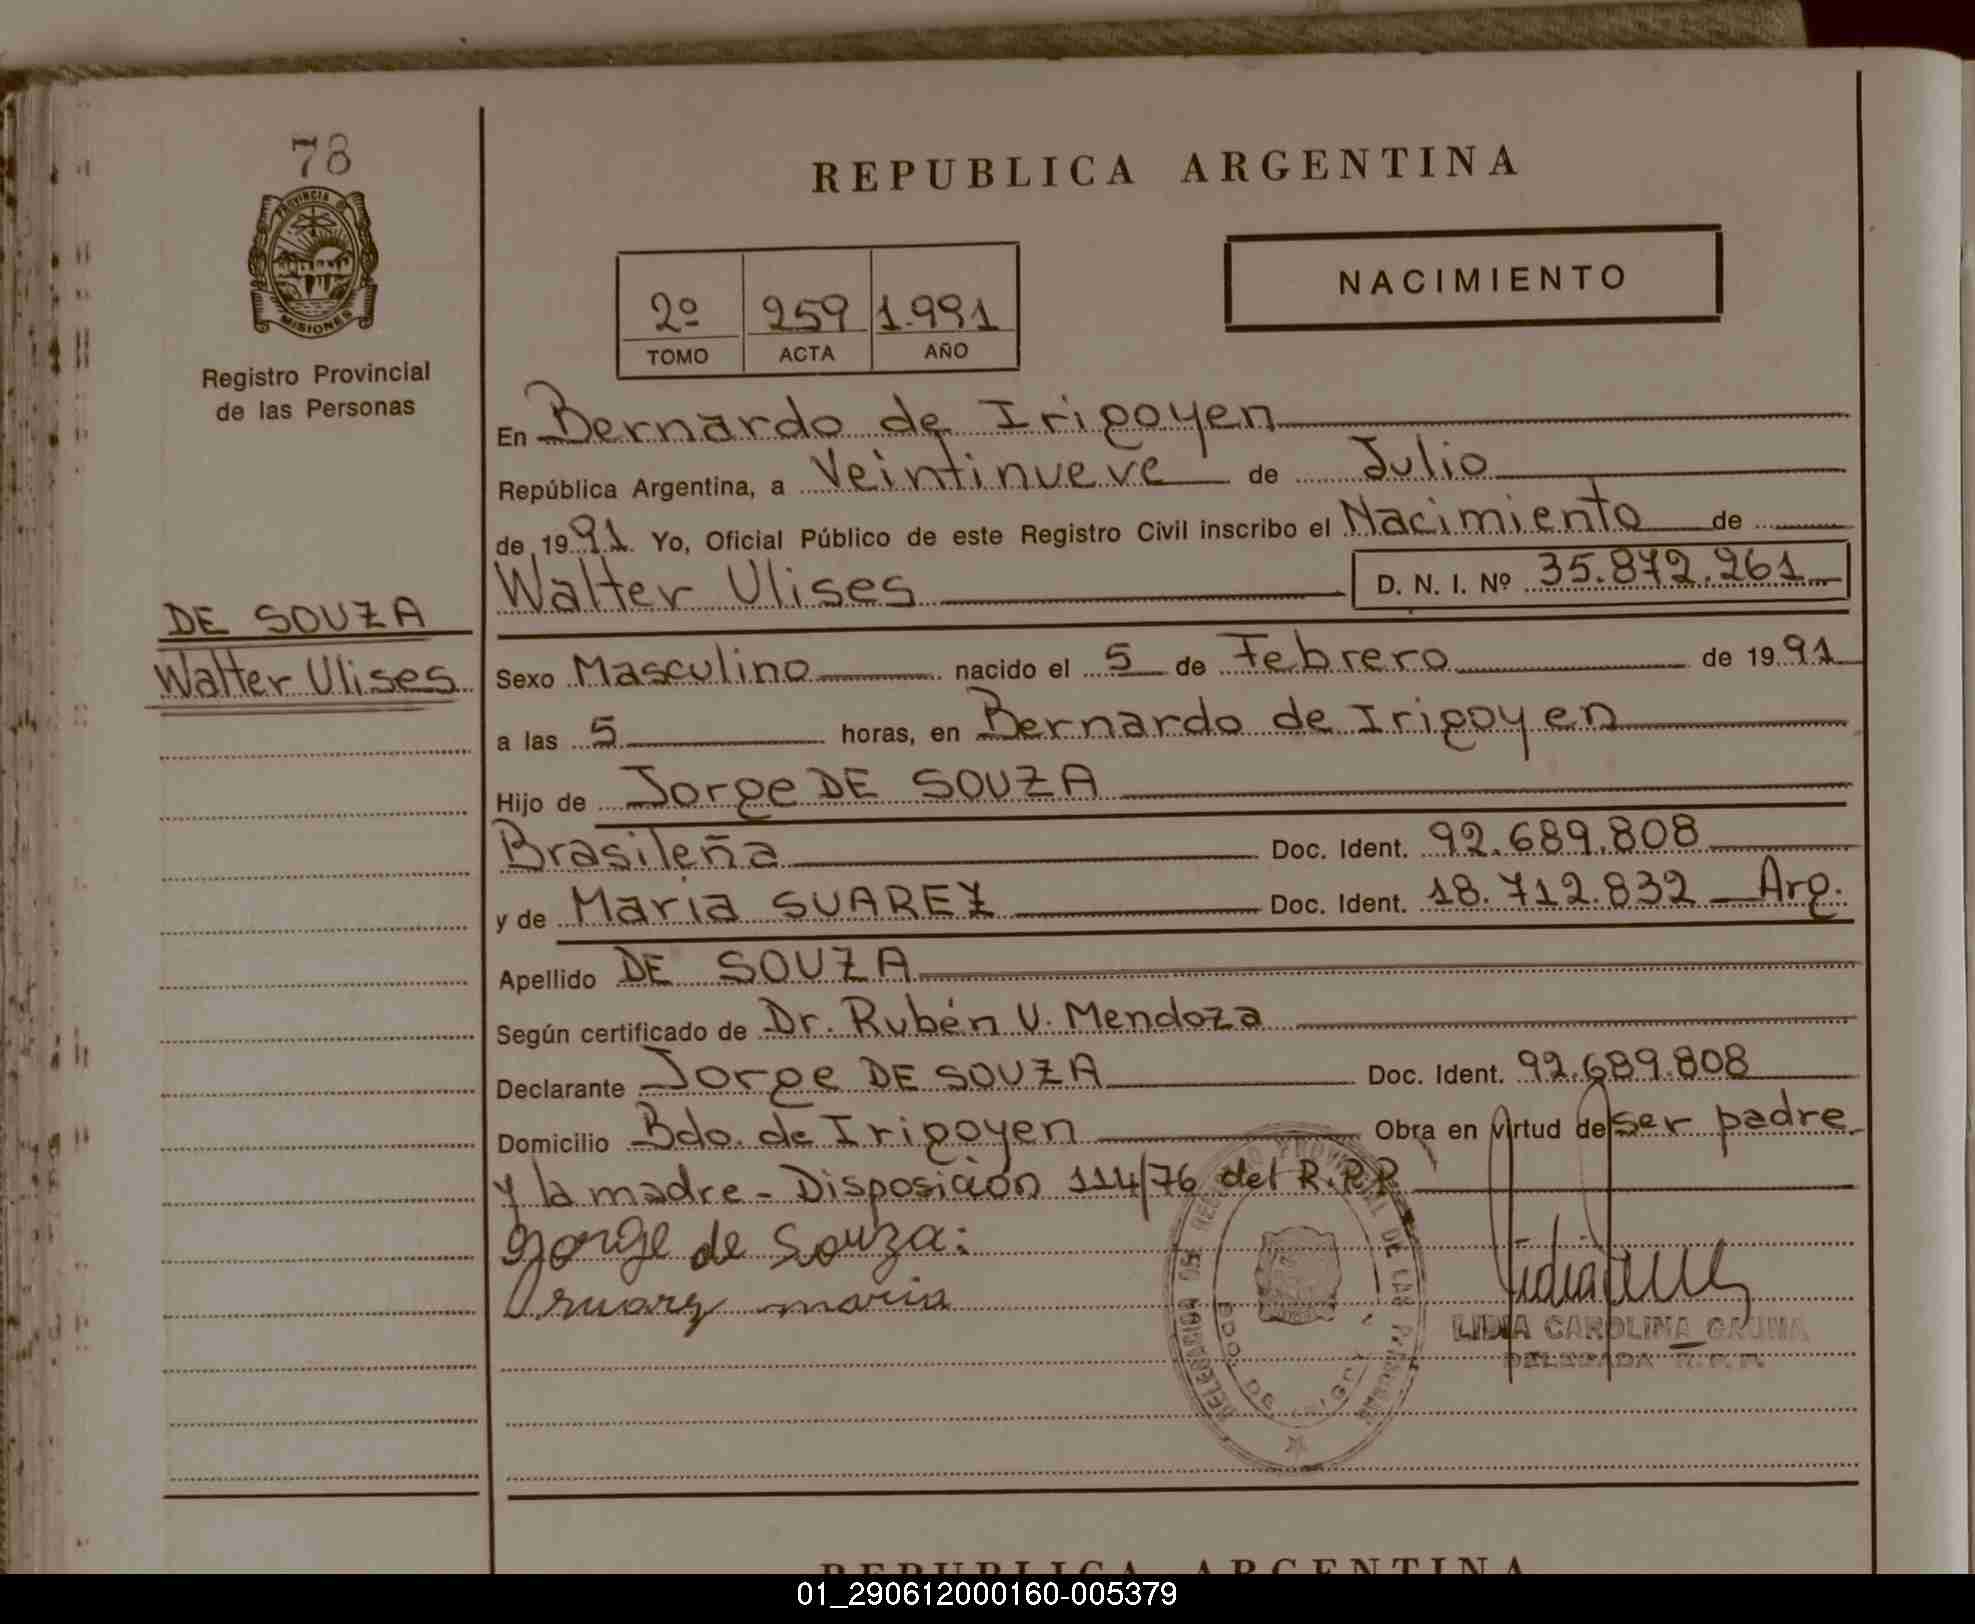 78
PROVINCIA DE
MISIONES
Registro Provincial
de las Personas
DE SOUZA
Walter Ulises
REPUBLICA ARGENTINA
NACIMIENTO
2º 259 1.991
TOMO ACTA AÑO
En Bernardo de Irigoyen
República Argentina, a Veintinueve de Julio
de 1991 Yo, Oficial Público de este Registro Civil inscribo el Nacimiento de
Walter Ulises D. N. I. Nº 35.872.261
Sexo Masculino nacido el 5 de Febrero de 1991
a las 5 horas, en Bernardo de Irigoyen
Hijo de Jorge DE SOUZA
Brasileña Doc. Ident. 92.689.808
y de Maria SUAREZ Doc. Ident. 18.712.832 Arg.
Apellido DE SOUZA
Según certificado de Dr. Rubén V. Mendoza
Declarante Jorge DE SOUZA Doc. Ident. 92.689.808
Domicilio Bdo. de Irigoyen Obra en virtud de ser padre
y la madre - Disposición 114/76 del R.P.P.
Jorge de Souza:
Suarez maria
LIDIA CAROLINA GAUNA
DELEGADA R.P.P.
REPUBLICA ARGENTINA
01_290612000160-005379